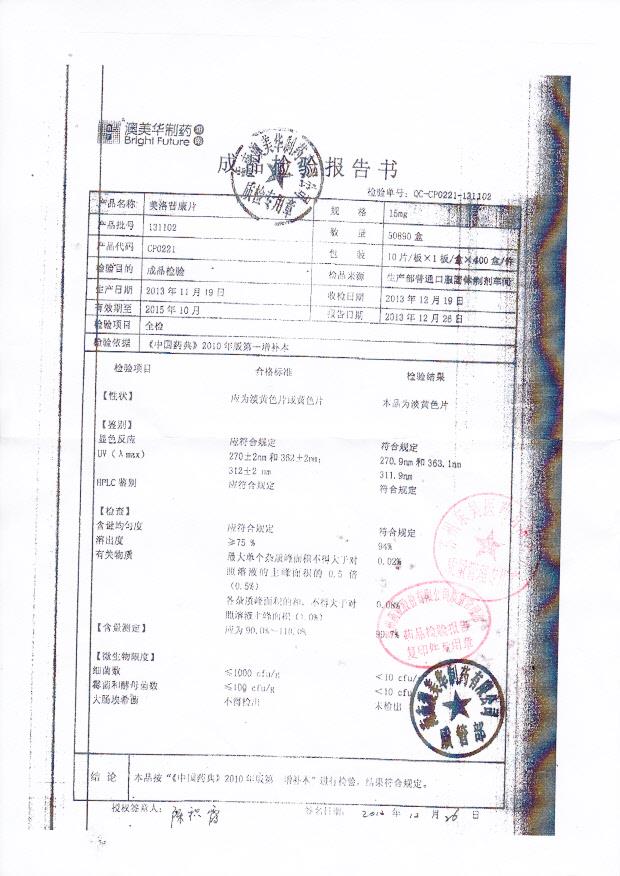 澳美华制药
Bright Future
成品检验报告书
检验单号：QC-CP0221-131102
产品名称 美洛昔康片 规 格 15mg
产品批号 131102 数 量 50890 盒
产品代码 CP0221 包 装 10 片/板×1 板/盒×400 盒/件
检验目的 成品检验 检品来源 生产部普通口服固体制剂车间
生产日期 2013 年 11 月 19 日 收检日期 2013 年 12 月 19 日
有效期至 2015 年 10 月 报告日期 2013 年 12 月 26 日
检验项目 全检
检验依据 《中国药典》2010 年版第一增补本
检验项目 合格标准 检验结果
【性状】 应为淡黄色片或黄色片 本品为淡黄色片
【鉴别】
显色反应 应符合规定 符合规定
UV（λmax） 270±2nm 和 362±2nm； 270.9nm 和 363.1nm
312±2 nm 311.9nm
HPLC 鉴别 应符合规定 符合规定
【检查】
含量均匀度 应符合规定 符合规定
溶出度 ≥75 % 94%
有关物质 最大单个杂质峰面积不得大于对 0.02%
照溶液的主峰面积的 0.5 倍
（0.5%）
各杂质峰面积的和，不得大于对 0.08%
照溶液主峰面积（1.0%）
【含量测定】 应为 90.0%～110.0%
【微生物限度】
细菌数 ≤1000 cfu/g ≤10 cfu/
霉菌和酵母菌数 ≤100 cfu/g <10 cfu
大肠埃希菌 不得检出 未检出
药品检验报告
复印件专用章
质管部
质检专用章
结 论 本品按“《中国药典》2010 年版第一增补本”进行检验，结果符合规定。
授权签章人： 签名日期： 2013 年 12 月 26 日